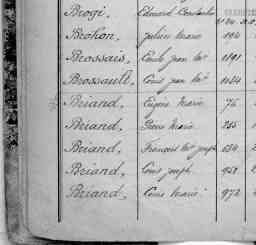 Brogi, Edouard Constantin
Brohon, Julien Marie 194
Brossais, Emile jean Me 1191
Brossault, Louis jean Me 1124
Briand, Eugène Marie 76
Briand, Pierre Marie 255
Briand, François Me joseph 634
Briand, Louis joseph 951
Briand, Louis Marie 972